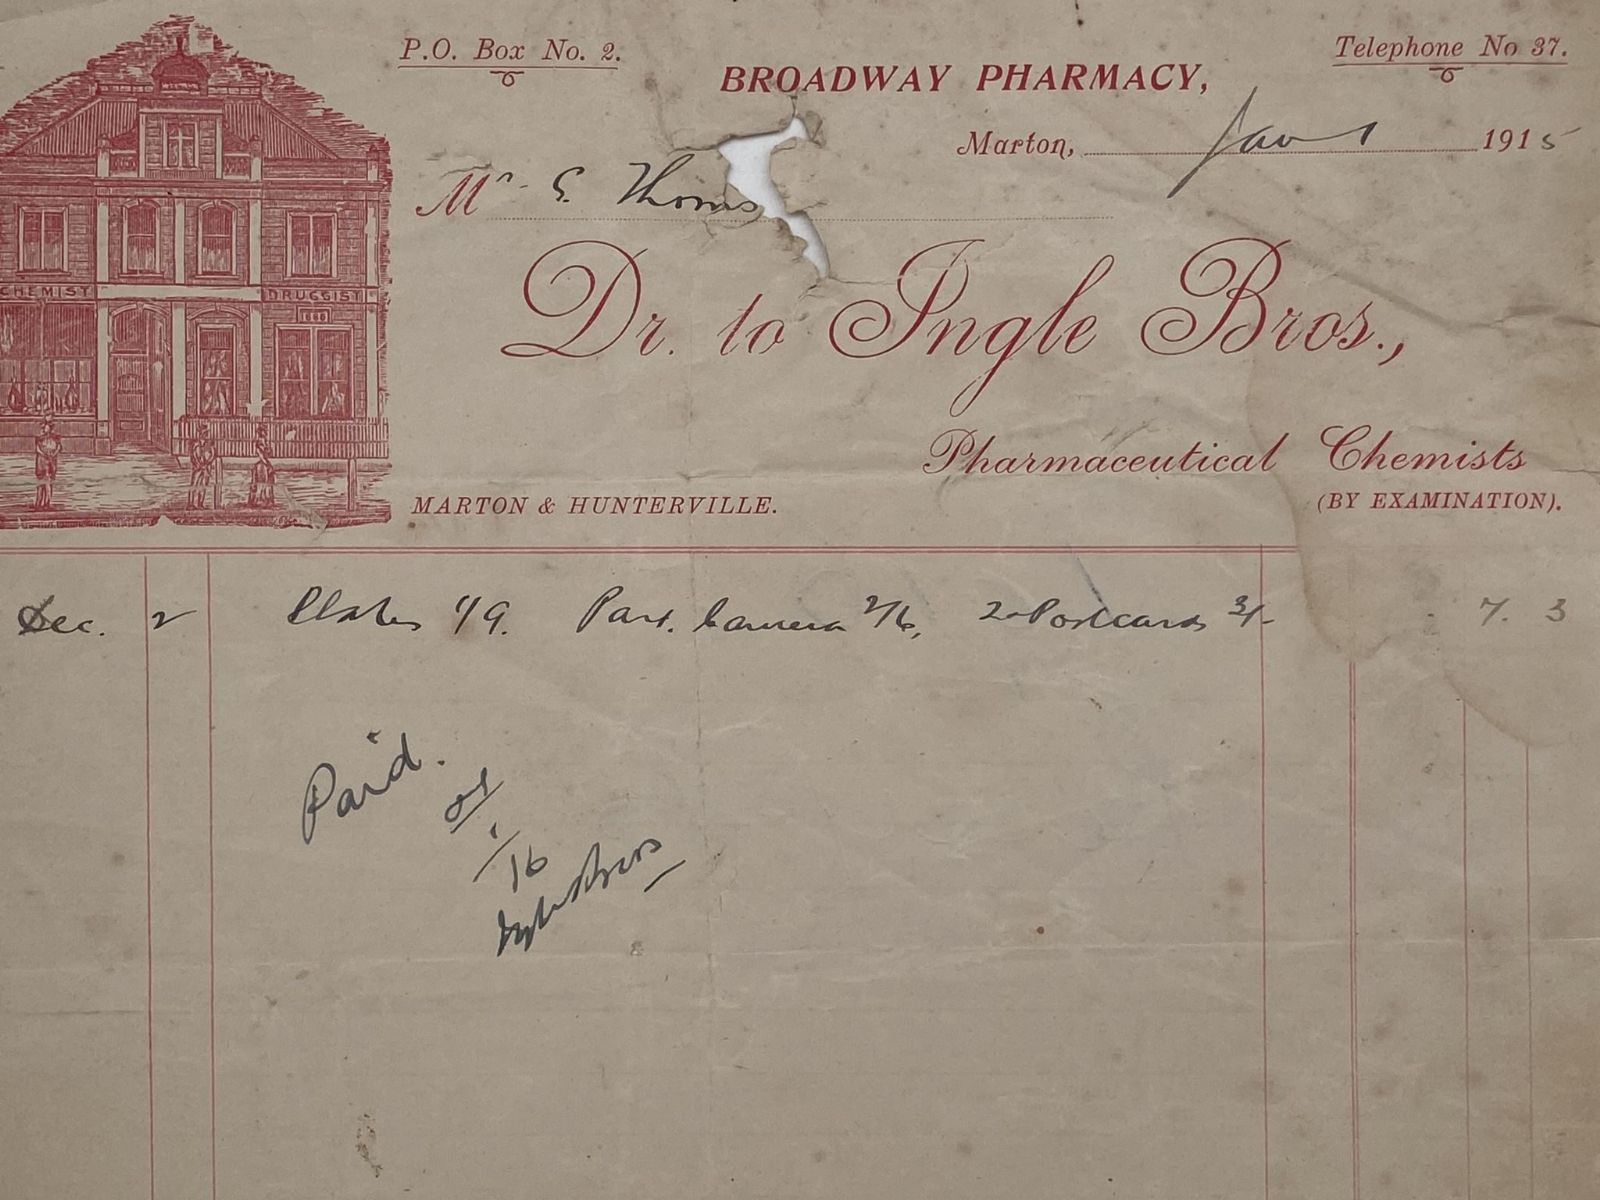 P.O. Box No. 2.
Telephone No 37.
BROADWAY PHARMACY,
Marton, Jan 1 1915
Mr. E. Thoms
CHEMIST DRUGGIST
Dr. to Ingle Bros.,
Pharmaceutical Chemists
MARTON & HUNTERVILLE.
(BY EXAMINATION).
Dec. 2 Plates 1/9. Part. Camera 2/6, 2 Postcards 3/- 7. 3
Paid.
16
Ingle Bros